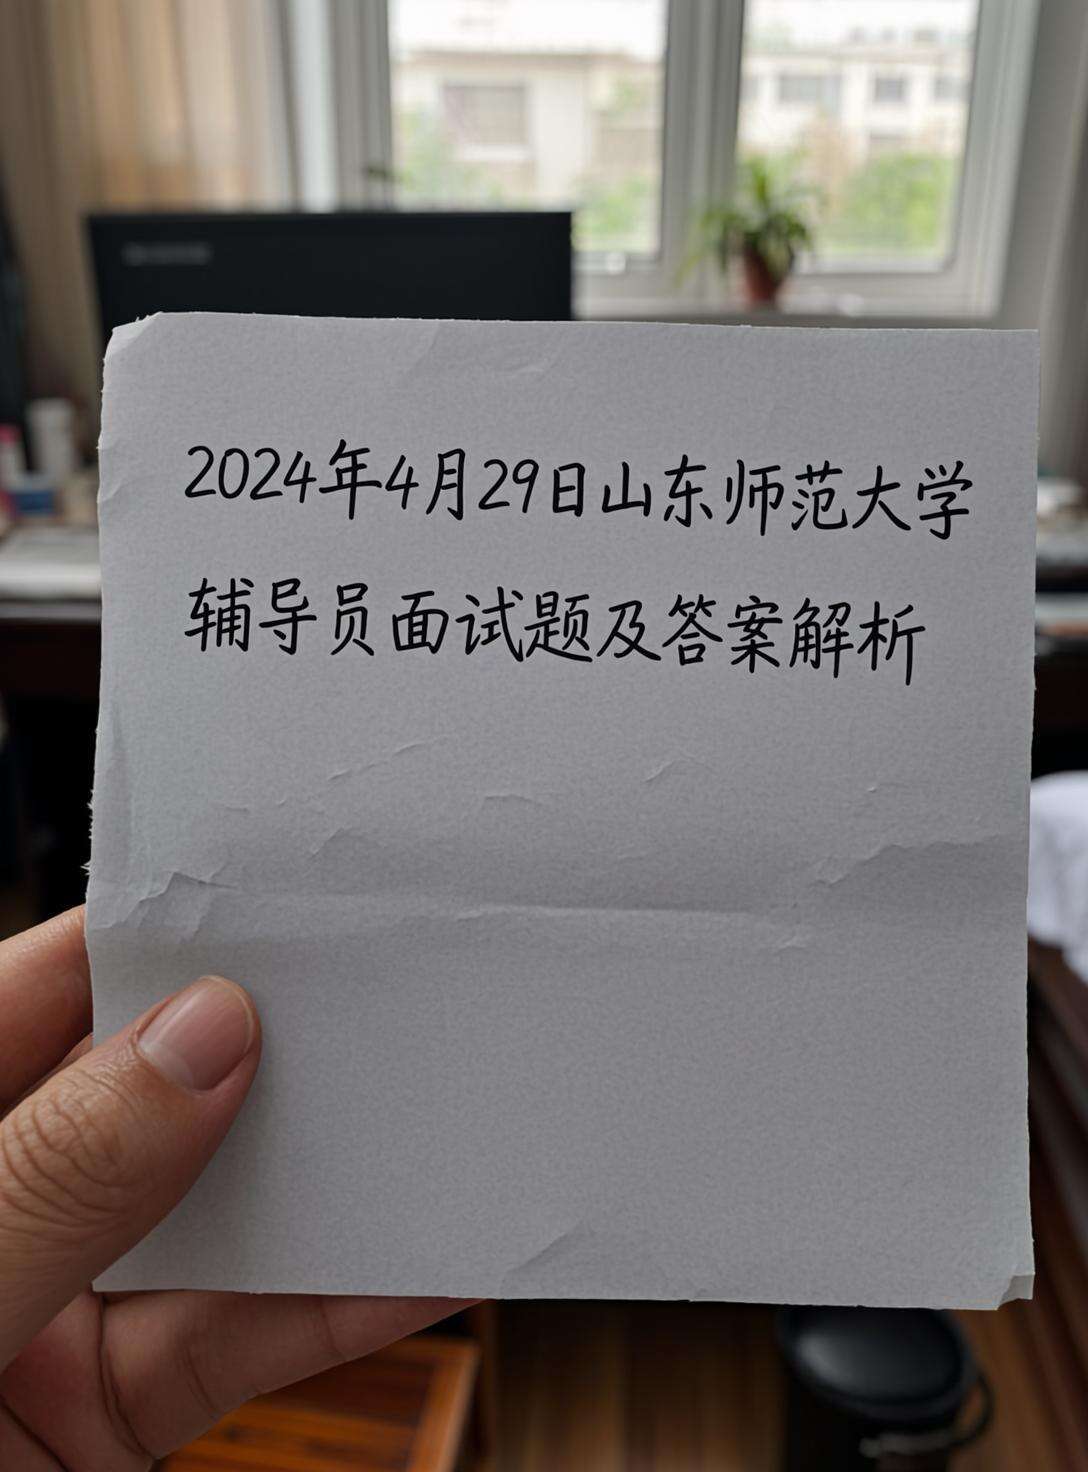 2024年4月29日山东师范大学
辅导员面试题及答案解析